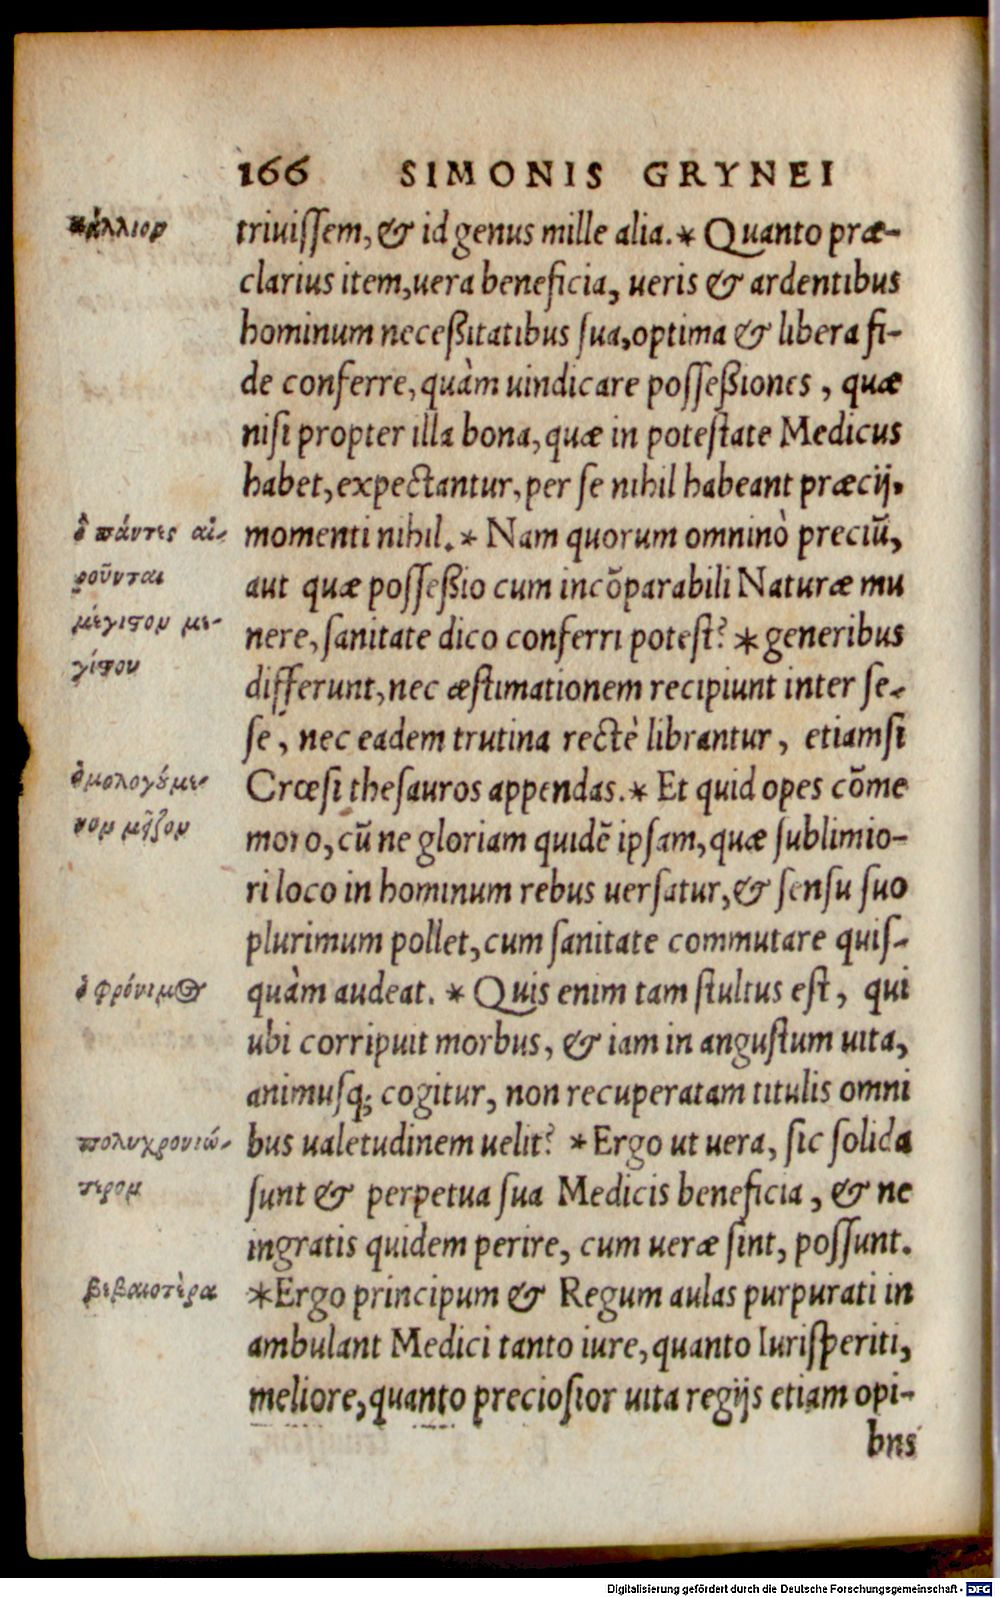 166 SIMONIS GRYNEI
κάλλιον
triuiſſem, & id genus mille alia.* Quanto præ-
clarius item, uera beneficia, ueris & ardentibus
hominum neceßitatibus ſua, optima & libera fi-
de conferre, quàm uindicare poſſeßiones, quæ
niſi propter illa bona, quæ in poteſtate Medicus
habet, expectantur, per ſe nihil habeant præcij,
ὃ πάντες αἱ-
momenti nihil.* Nam quorum omninò preciũ,
ροῦνται
aut quæ poſſeßio cum incõparabili Naturæ mu
μέγιϛον με-
nere, ſanitate dico conferri poteſt? *generibus
γίϛου
differunt, nec æſtimationem recipiunt inter ſe-
ſe, nec eadem trutina rectè librantur, etiamſi
ὁμολογȣ́με-
Crœſi theſauros appendas.* Et quid opes cõme
νον μεῖζον
moro, cũ ne gloriam quidẽ ipſam, quæ ſublimio-
ri loco in hominum rebus uerſatur, & ſenſu ſuo
plurimum pollet, cum ſanitate commutare quiſ-
ὁ φρόνιμος
quàm audeat. * Quis enim tam ſtultus eſt, qui
ubi corripuit morbus, & iam in anguſtum uita,
animuſq; cogitur, non recuperatam titulis omni
πολυχρονιώ-
bus ualetudinem uelit? *Ergo ut uera, ſic ſolida
τερον
ſunt & perpetua ſua Medicis beneficia, & ne
ingratis quidem perire, cum ueræ ſint, poſſunt.
βεβαιοτέρα
*Ergo principum & Regum aulas purpurati in
ambulant Medici tanto iure, quanto Iuriſperiti,
meliore, quanto precioſior uita regijs etiam opi-
bus
Digitalisierung gefördert durch die Deutsche Forschungsgemeinschaft - DFG